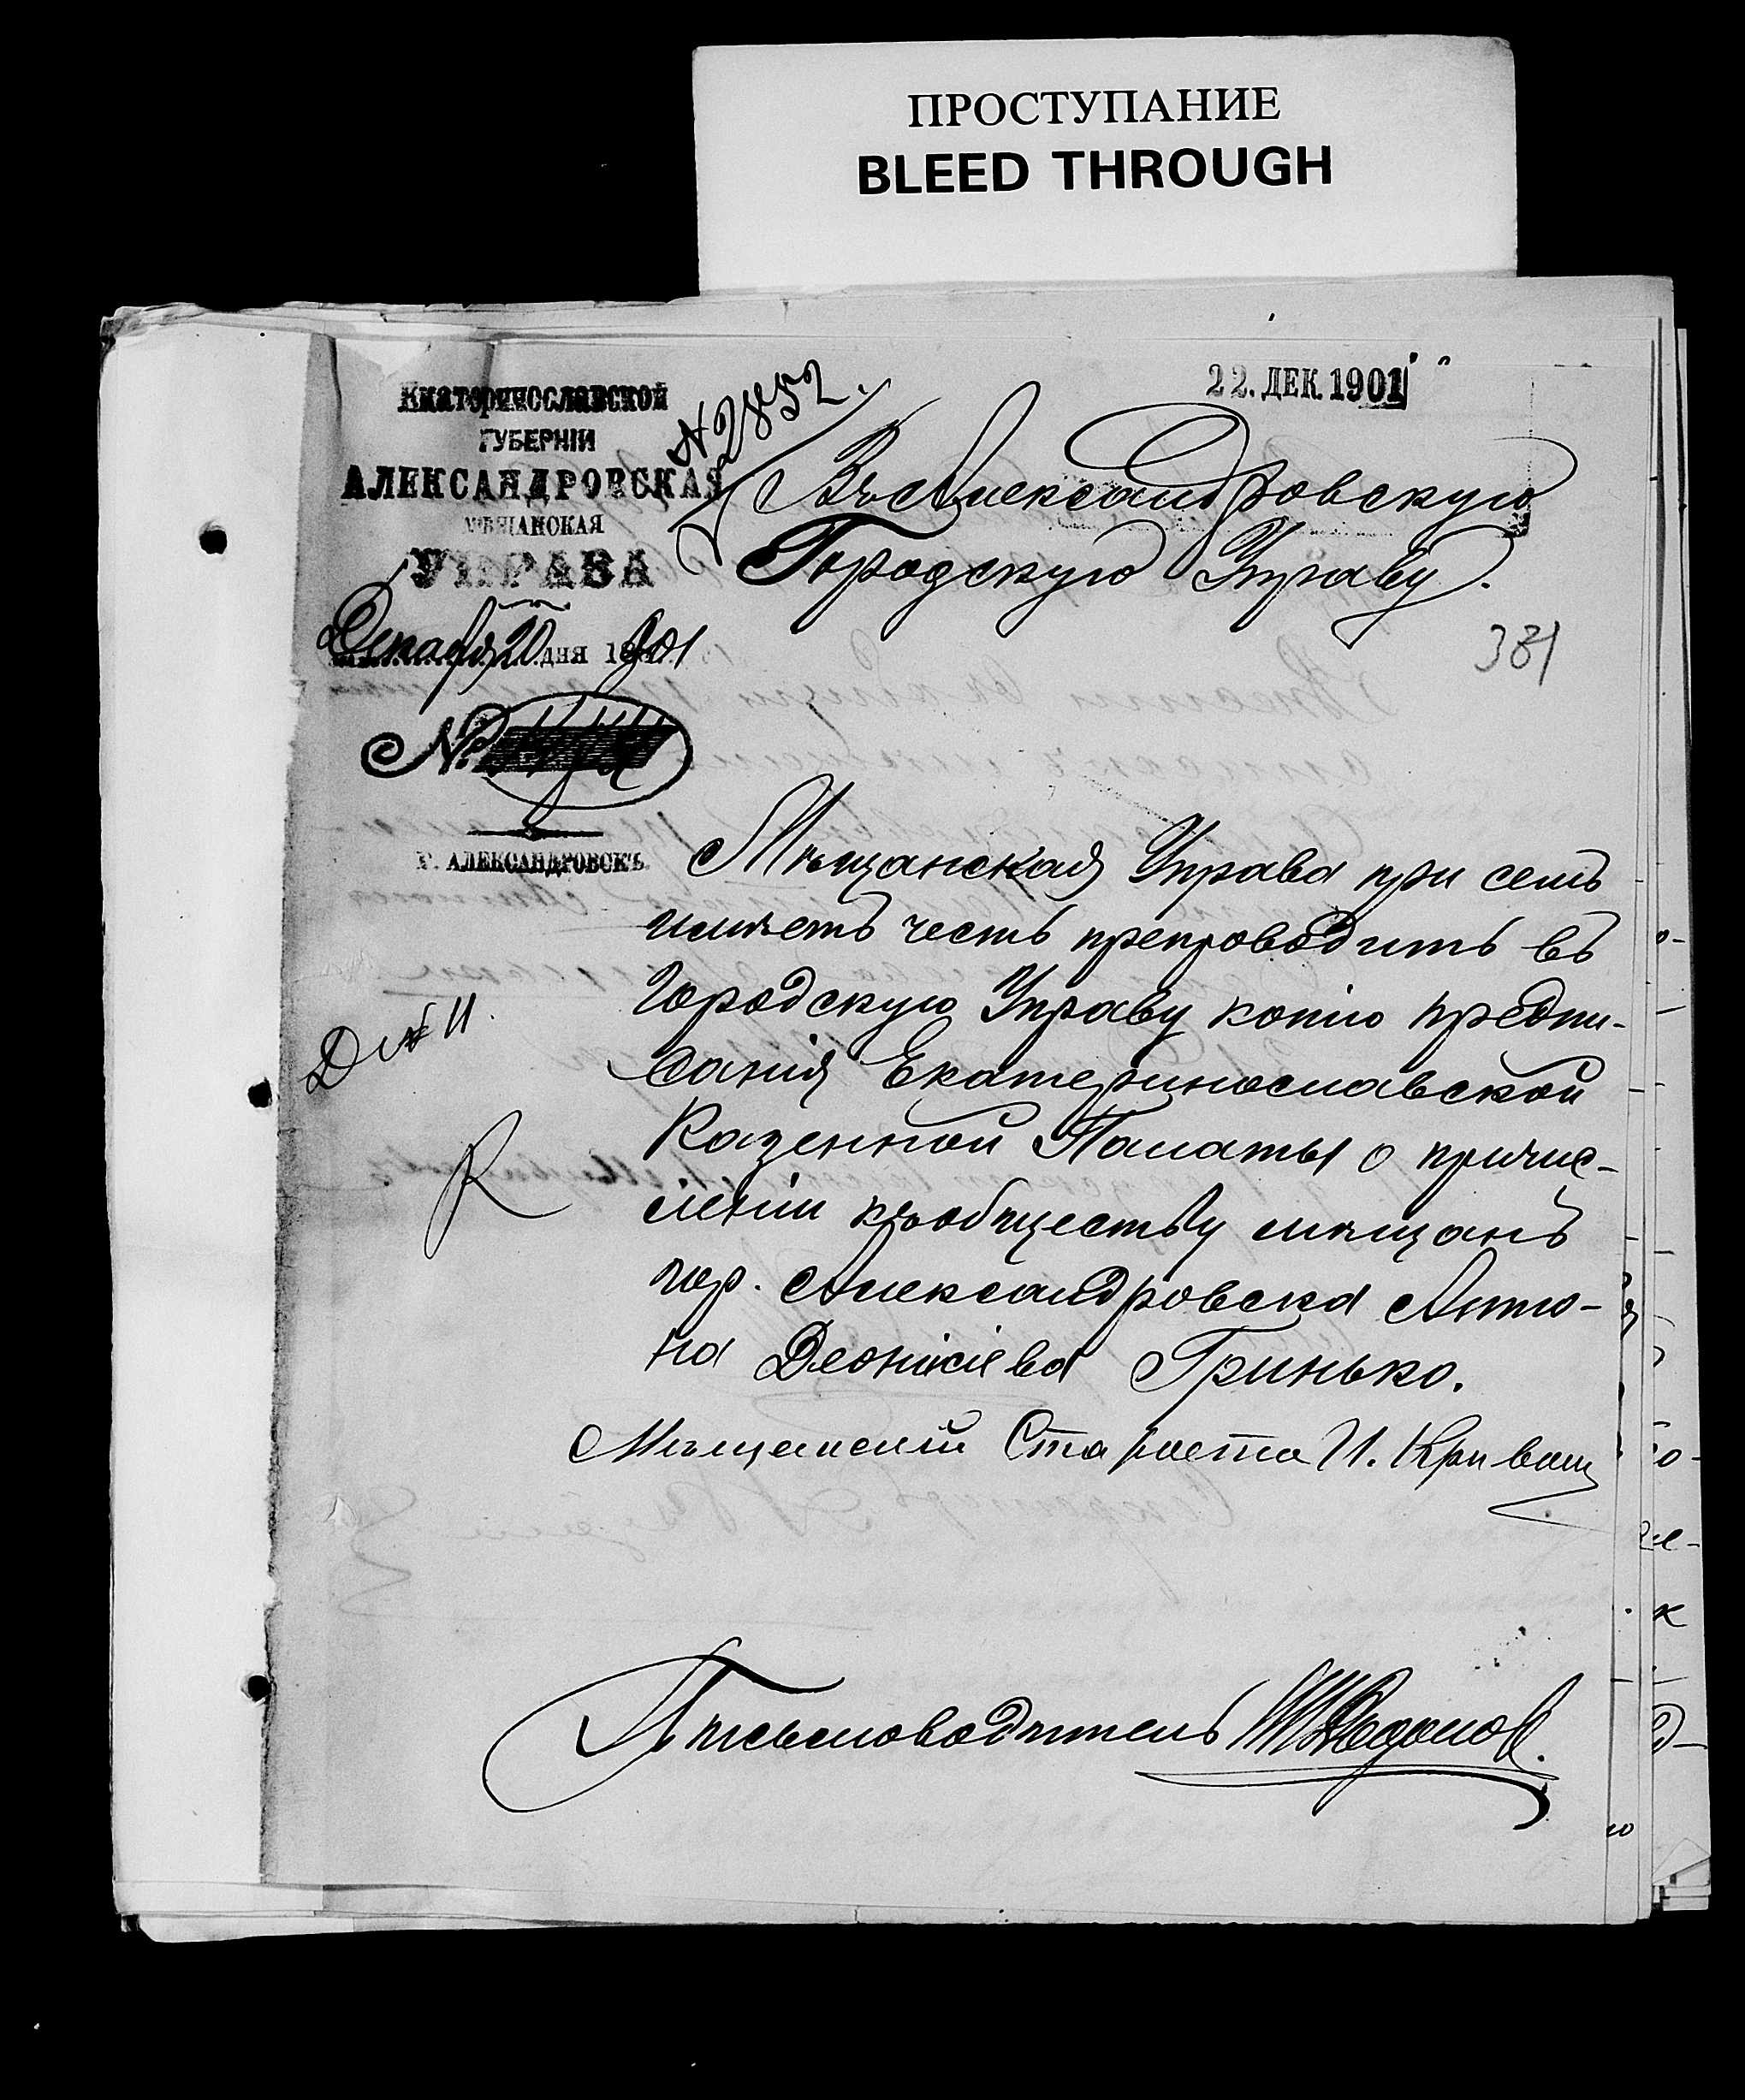 ПРОСТУПАНИЕ
BLEED THROUGH
22. ДЕК. 1901
Екатеринославской
ГУБЕРНІИ
АЛЕКСАНДРОВСКАЯ
МѢЩАНСКАЯ
УПРАВА
Декабря 20 дня 1901
№
г. АЛЕКСАНДРОВСКЪ
№ 2852.
Въ Александровскую
Городскую Управу.
381
Мѣщанская Управа при семъ
имѣетъ честь препроводить въ
Городскую Управу копію предпи-
санія Екатеринославской
Казенной Палаты о причис-
леніи къ обществу мѣщанъ
гор. Александровска Анто-
на Деонисіева Гринько.
Д № 11.
Мѣщанскій Староста И. Кривош
Письмоводитель